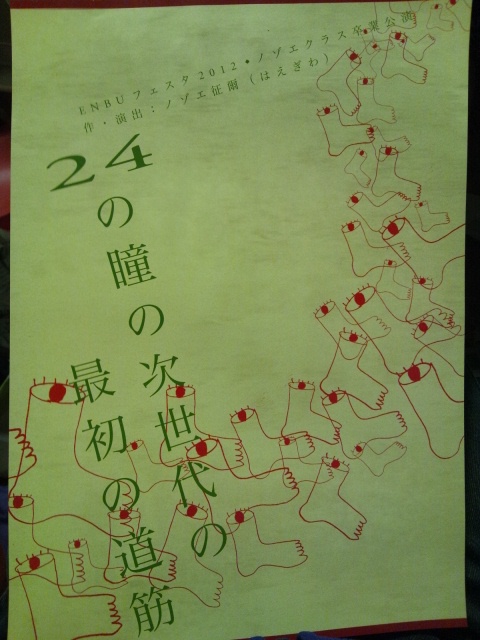 ENBUフェスタ2012・ノゾエクラス卒業公演
作・演出：ノゾエ征爾（はえぎわ）
24の瞳の次世代の
最初の道筋